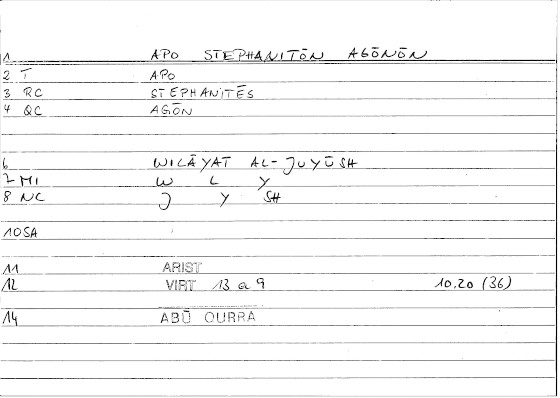 1 APO STEPHANITŌN AGŌNŌN
2 T APO
3 RC STEPHANITĒS
4 QC AGŌN
6 WILĀYAT AL-JUYŪSH
7 MI W L Y
8 NC J Y SH
10 SA
11 ARIST
12 VIRT 13 a 9 10.20 (36)
14 ABŪ QURRA